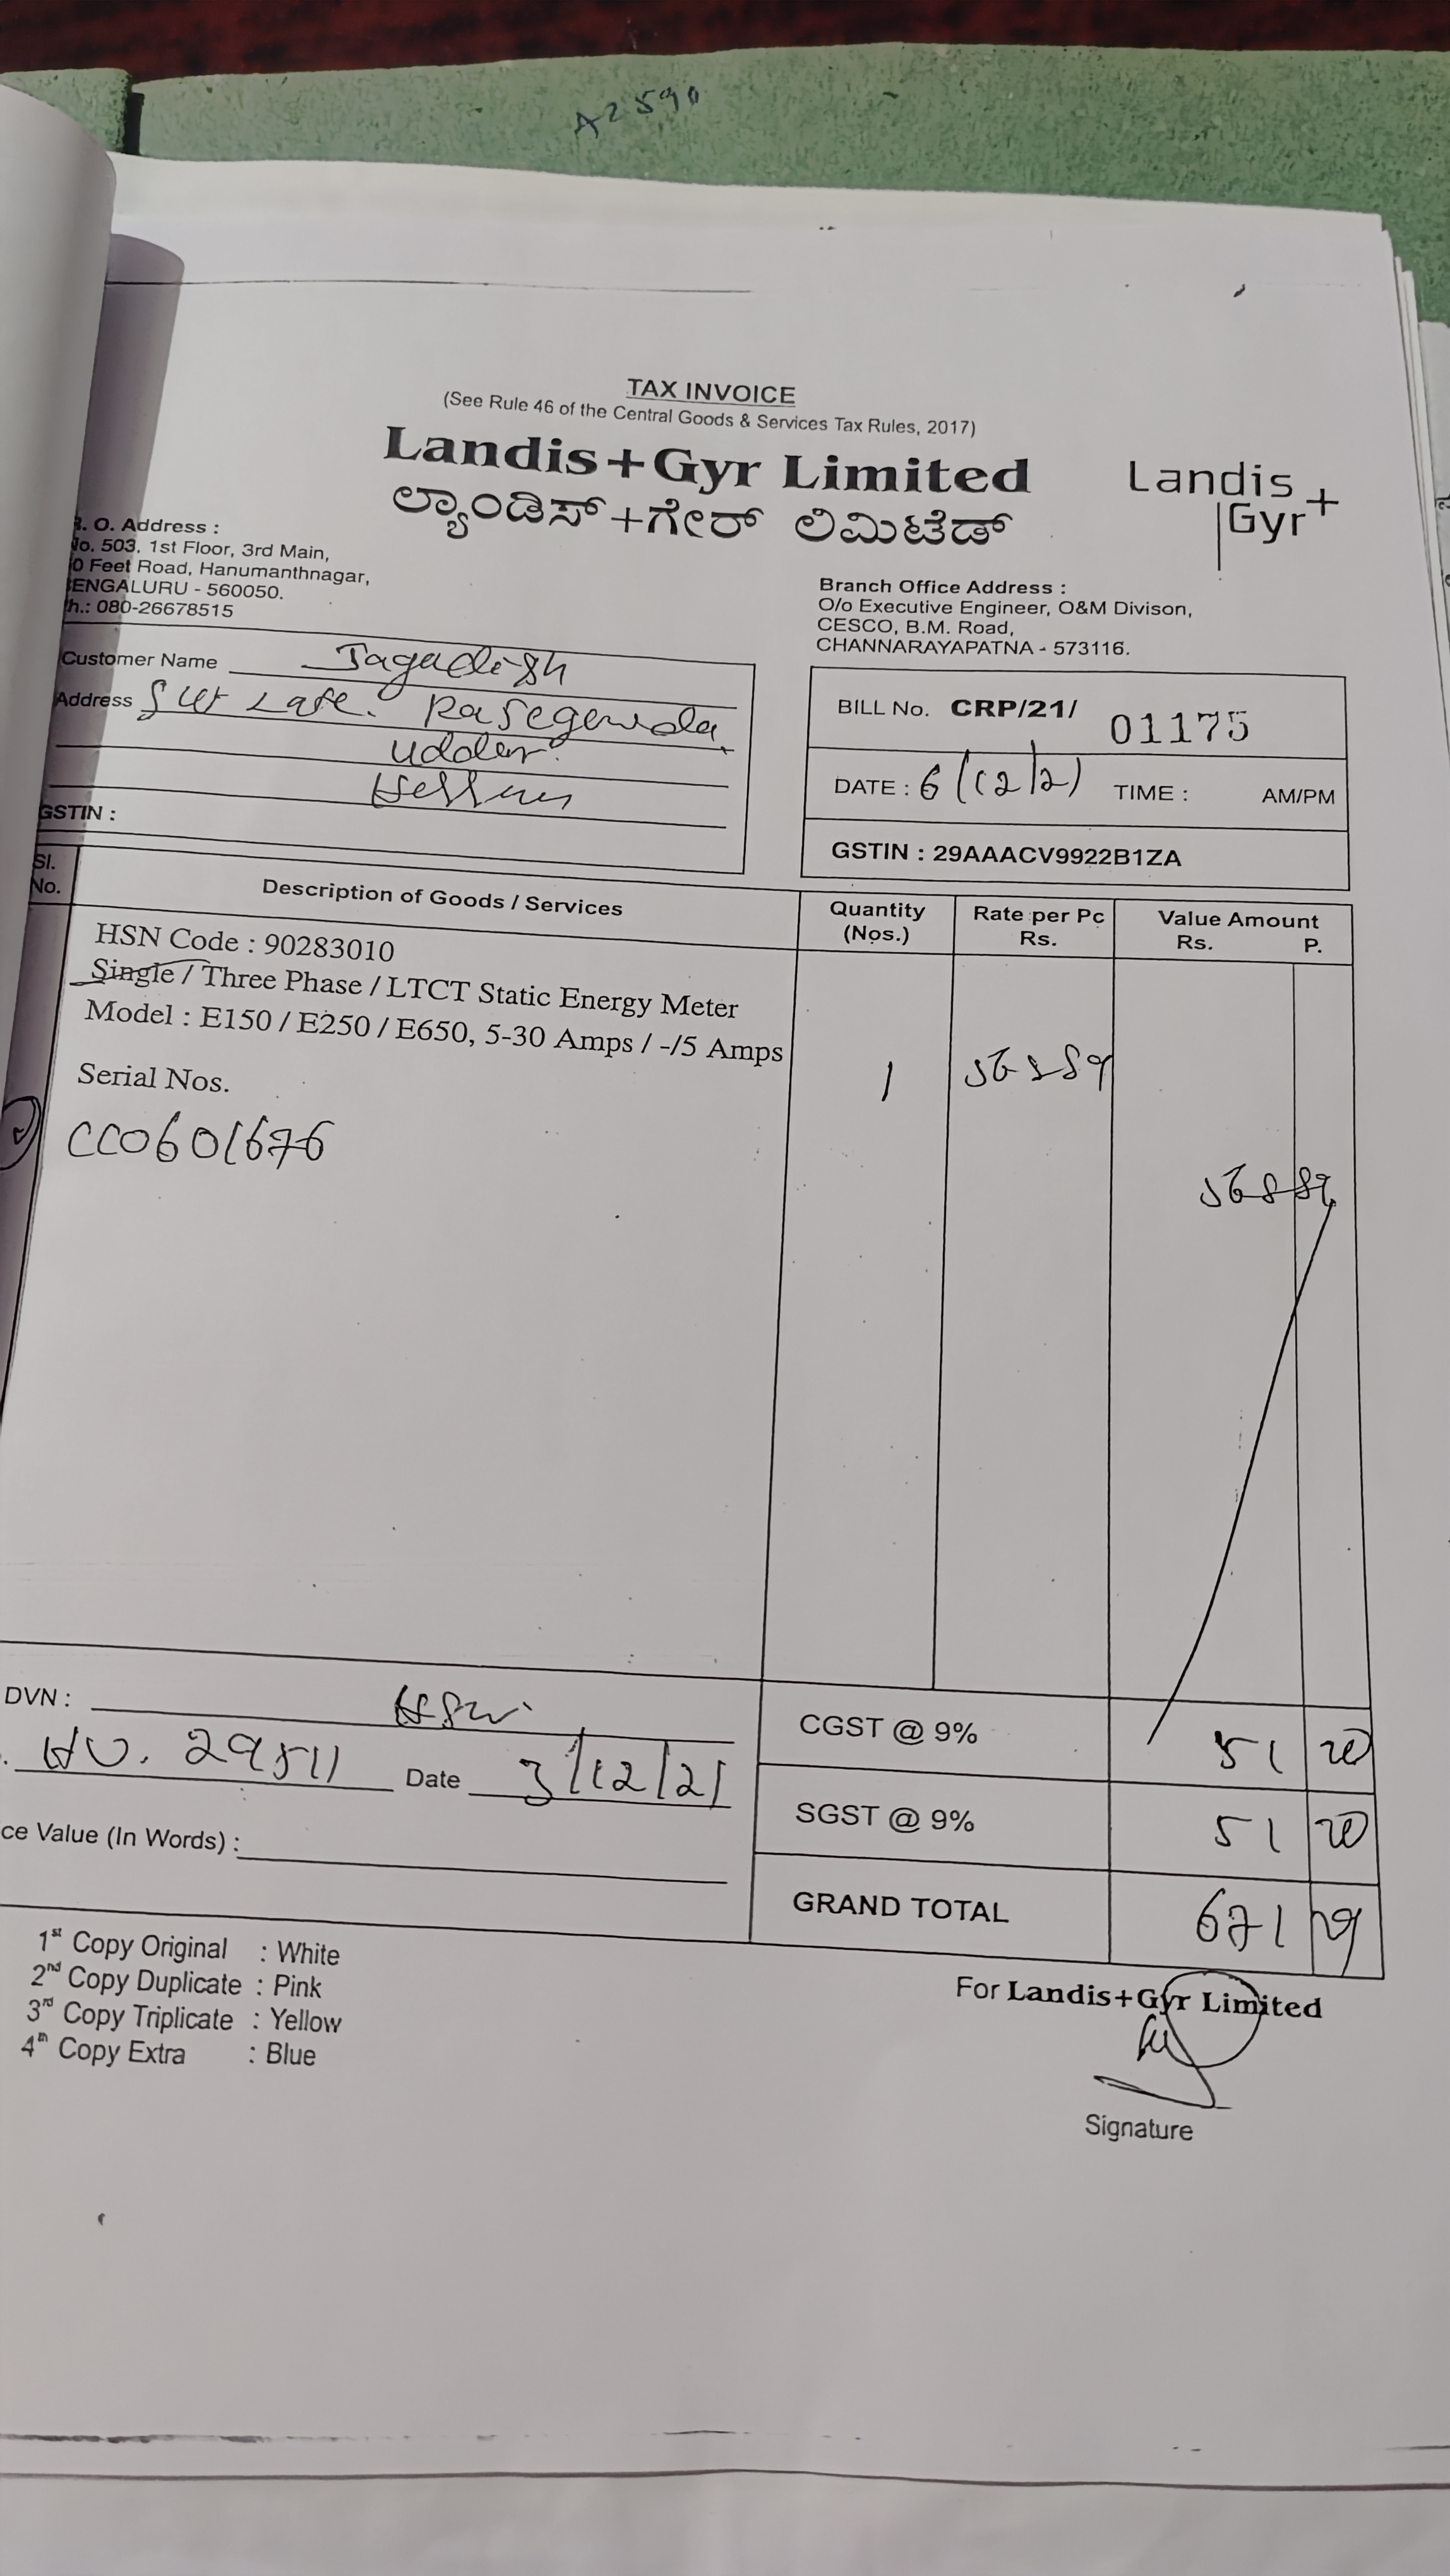 A2590
TAX INVOICE
(See Rule 46 of the Central Goods & Services Tax Rules, 2017)
Landis+Gyr Limited
ಲ್ಯಾಂಡಿಸ್+ಗೇರ್ ಲಿಮಿಟೆಡ್
Landis
Gyr+
R. O. Address :
No. 503, 1st Floor, 3rd Main,
0 Feet Road, Hanumanthnagar,
BENGALURU - 560050.
h.: 080-26678515
Branch Office Address :
O/o Executive Engineer, O&M Divison,
CESCO, B.M. Road,
CHANNARAYAPATNA - 573116.
Customer Name Jagadish
Address Late.
GSTIN :
BILL No. CRP/21/ 01175
DATE : 6/12/21 TIME : AM/PM
GSTIN : 29AAACV9922B1ZA
Sl. No. Description of Goods / Services Quantity (Nos.) Rate per Pc Rs. Value Amount Rs. P.
HSN Code : 90283010
Single / Three Phase / LTCT Static Energy Meter
Model : E150 / E250 / E650, 5-30 Amps / -/5 Amps
Serial Nos.
1 568 89
CC0601676
568 89
DVN : HSN
CGST @ 9% 51 20
29511 Date 3/12/21
SGST @ 9% 51 20
ce Value (In Words) :
GRAND TOTAL 671 29
1st Copy Original : White
2nd Copy Duplicate : Pink
3rd Copy Triplicate : Yellow
4th Copy Extra : Blue
For Landis+Gyr Limited
Signature